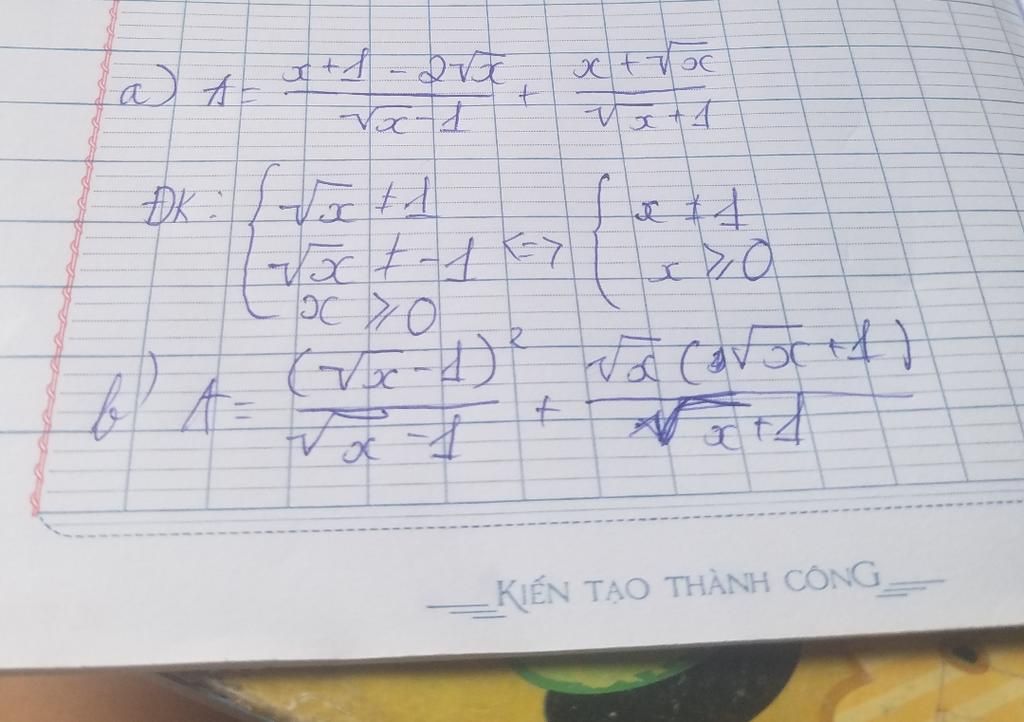 a) A = (x+1-2√x)/(√x-1) + (x+√x)/(√x+1)
ĐK: { √x ≠ 1
√x ≠ -1 <=> { x ≠ 1
x ≥ 0 x ≥ 0
b) A = (√x-1)²/(√x-1) + √x(√x+1)/(√x+1)
KIẾN TẠO THÀNH CÔNG